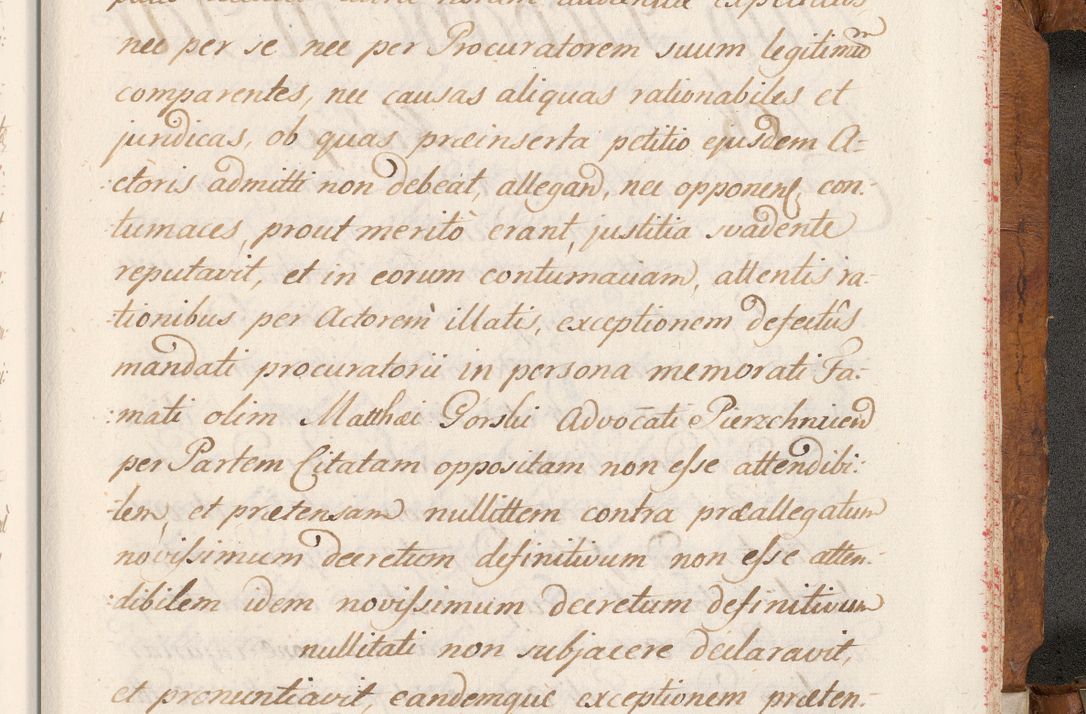 nec per se nec per Procuratorem suum legitimū
comparentes, nec causas aliquas rationabiles et
juridicas, ob quas præinserta petitio ejusdem A-
ctoris admitti non debeat, allegand, nec opponend, con-
tumaces, prout meritò erant, justitia svadente
reputavit, et in eorum contumaciam, attentis ra-
tionibus per Actorem illatis, exceptionem defectûs
mandati procuratorii in persona memorati Fa-
mati olim Matthæi Gorski Advocati Pierzchnicen
per Partem Citatam oppositam non esse attendibi-
lem, et prætensam nullittem contra præallegatum
novissimum decretum definitivum non esse atten-
dibilem idem novissimum decretum definitivum
nullitati non subjacere declaravit,
et pronuntiavit, eandemque exceptionem præten-